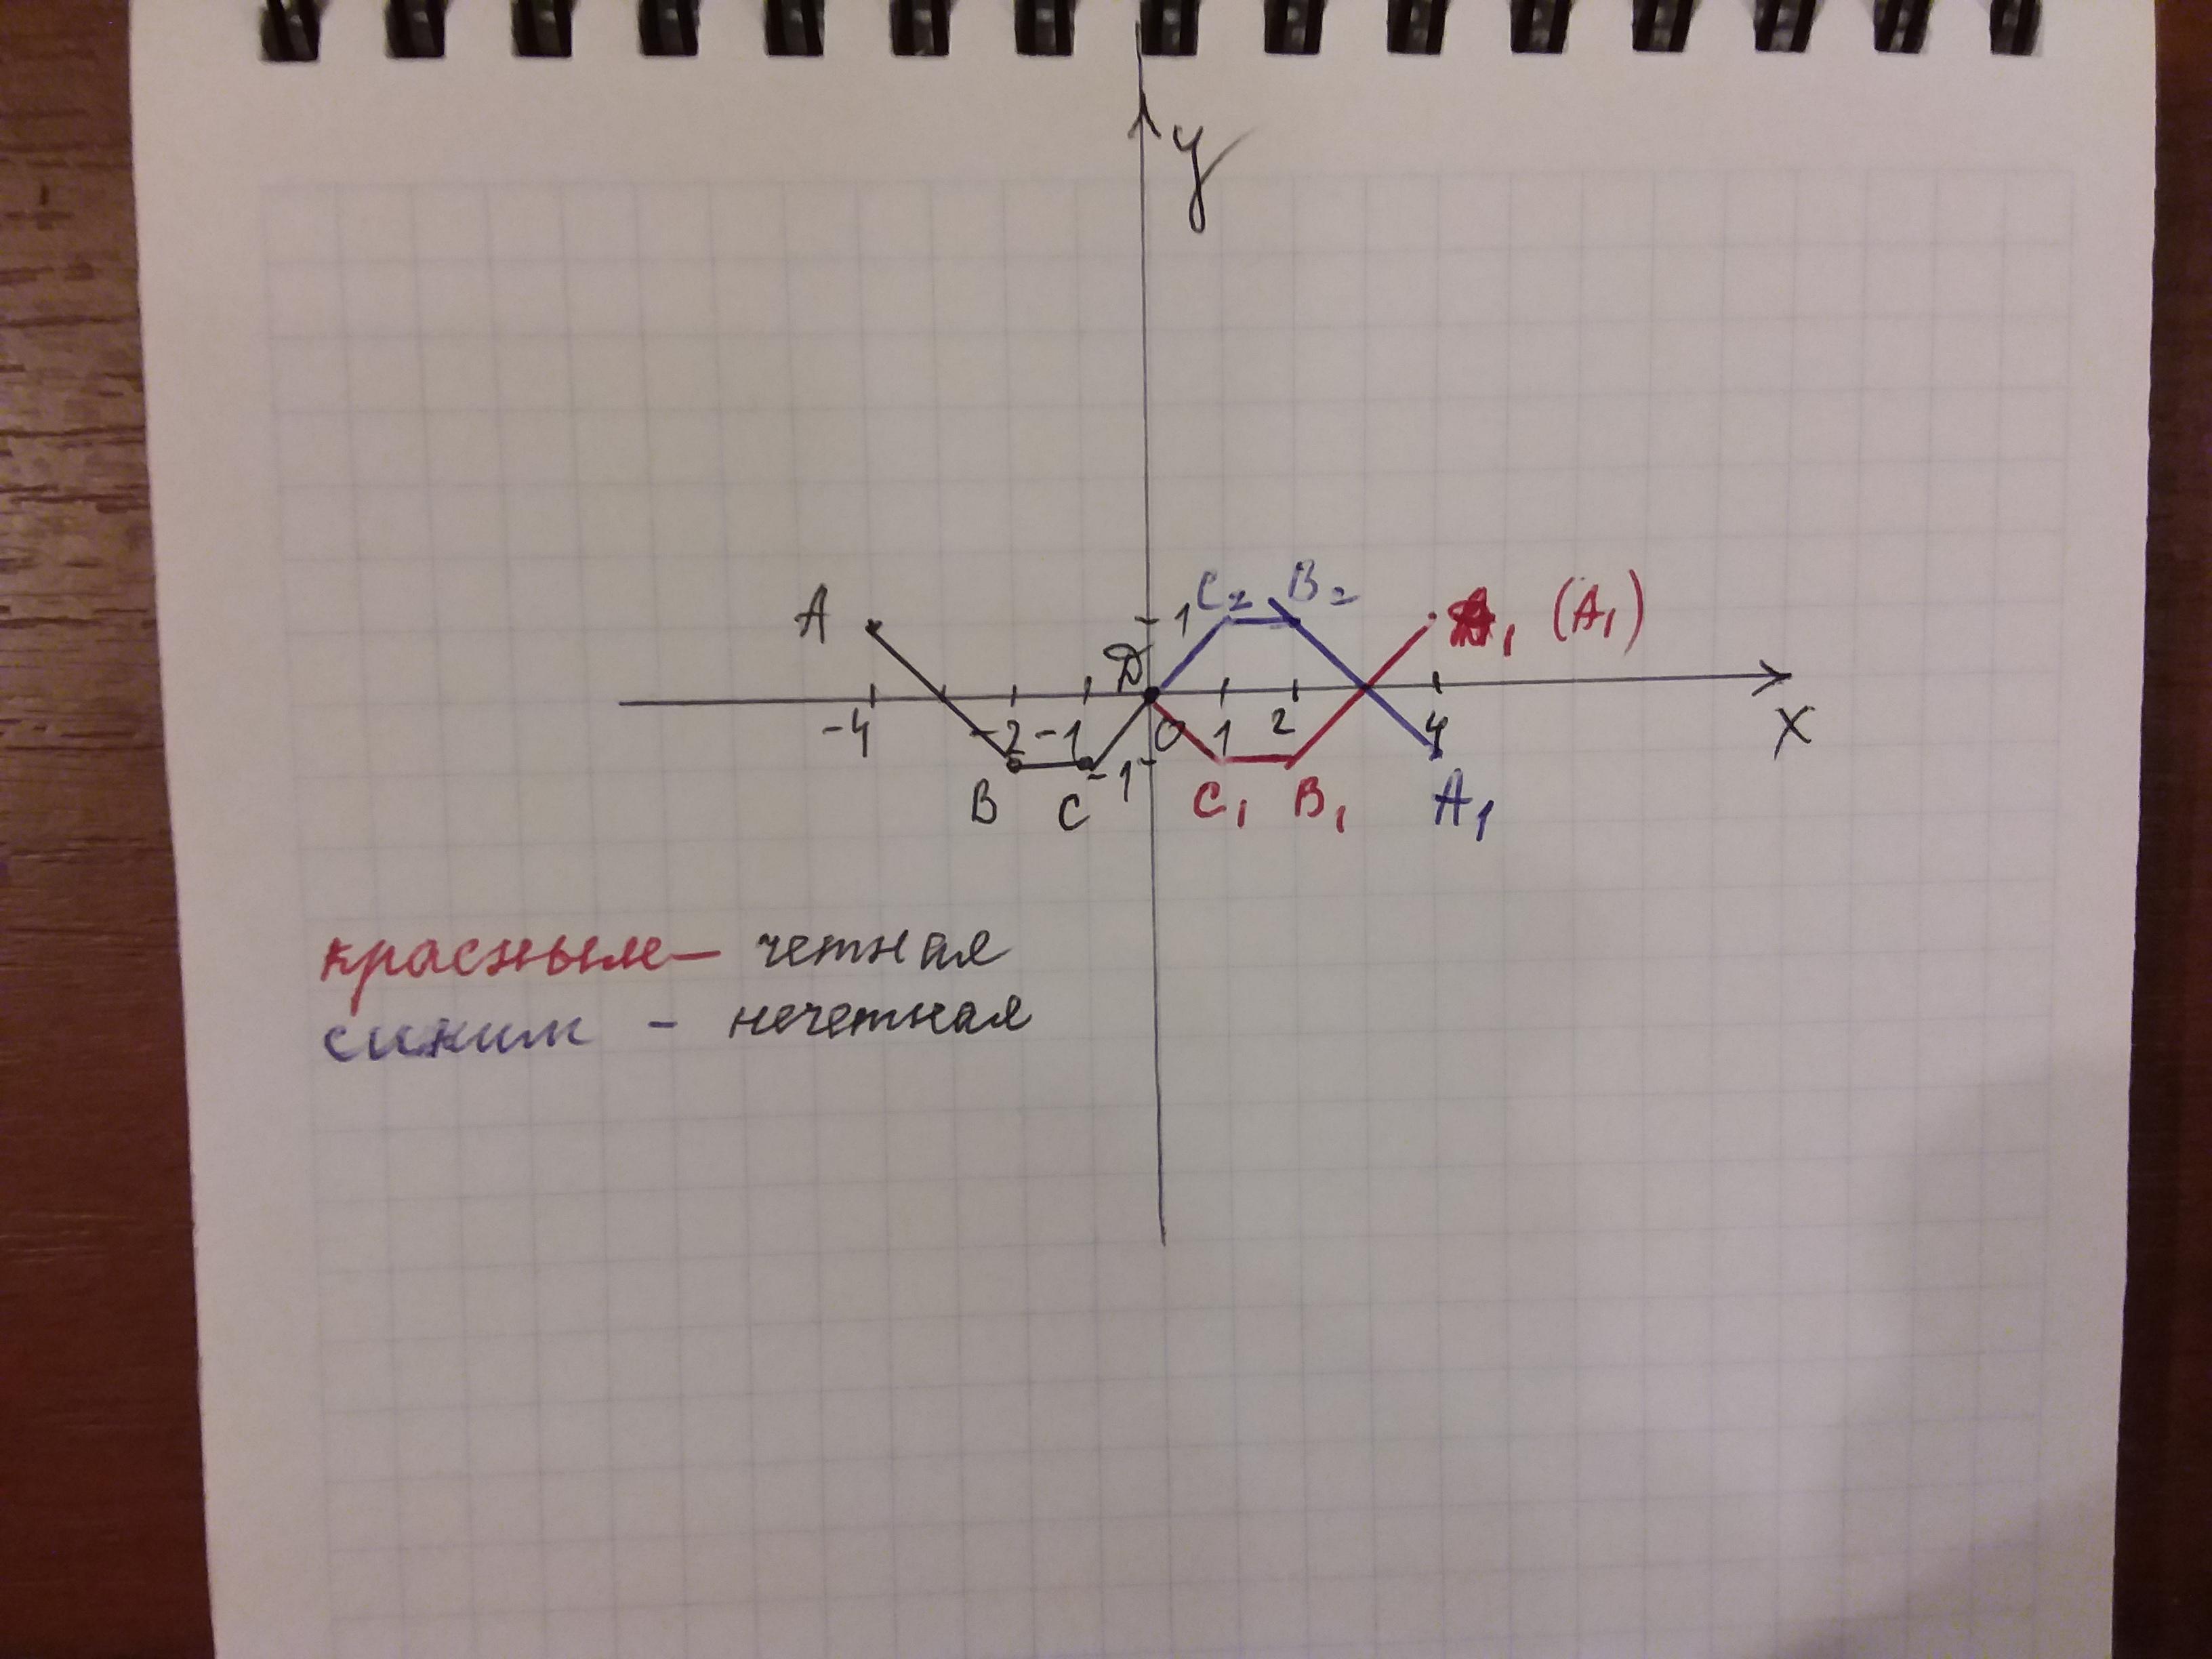 y
C₂ B₂
A 1 A₁ (A₁)
D
-4 -2 -1 0 1 2 4
x
B C -1 C₁ B₁ A₁
красным — четная
синим - нечетная